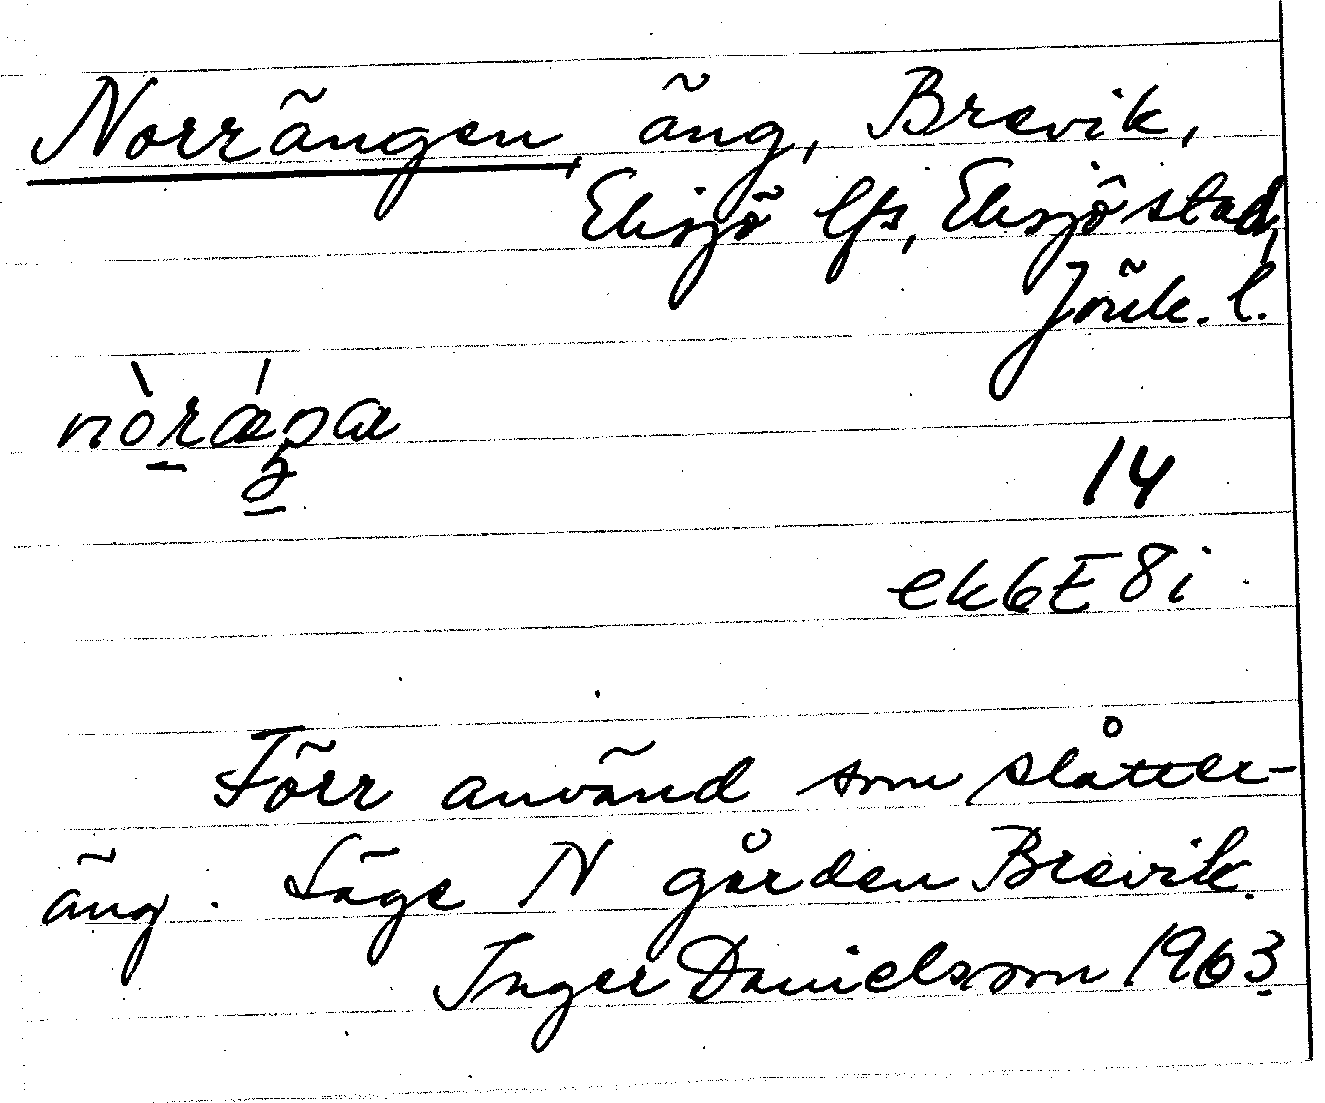 Norrängen, äng, Brevik,
Eksjö lfs, Eksjö stad,
Jönk. l.
nòrǽŋa
14
ek6E8i
Förr använd som slåtter-
äng. Läge N gården Brevik.
Inger Danielsson 1963